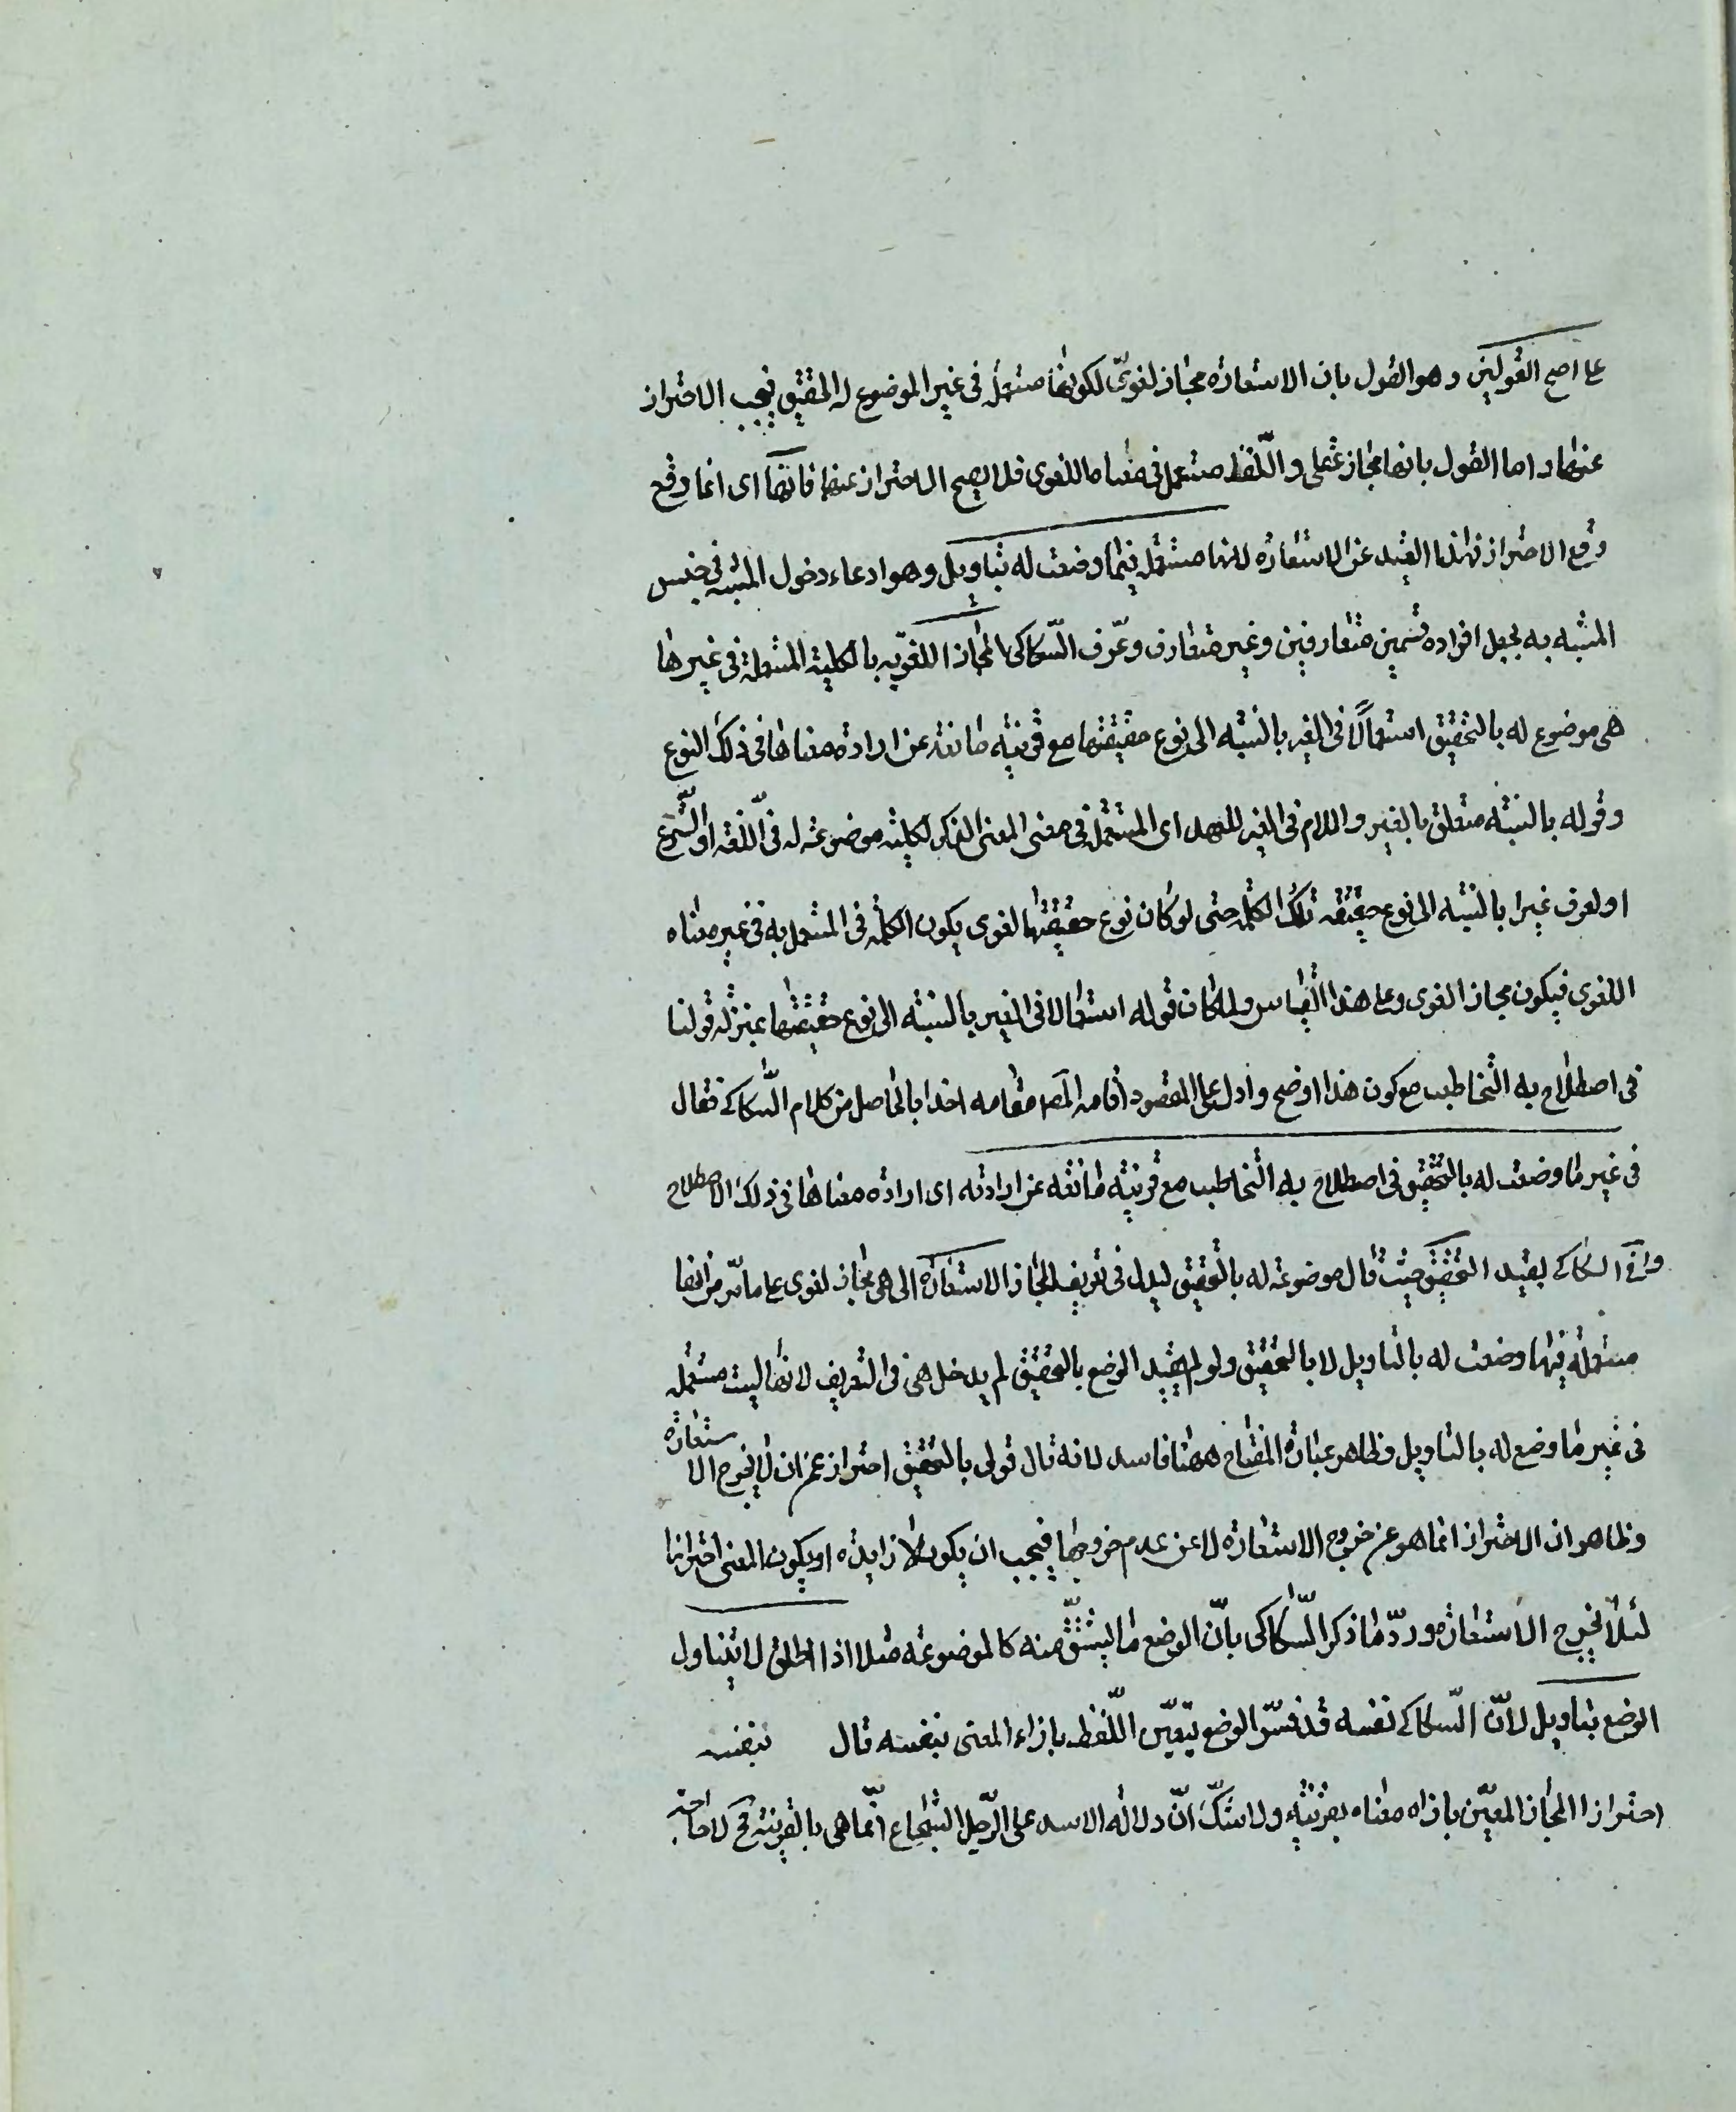 على اصح القولين وهو القول بان الاستعارة مجاز لغوىّ لكونها مستعملة فى غير الموضوع له الحقيقى فيجب الاحتراز
عنها واما القول بانها مجاز عقلى واللّفظ مستعمل فى معناه اللغوى فلا يصح الاحتراز عنها فانّها اى انما وقع
وقع الاحتراز بهذا القيد عن الاستعارة لانها مستعملة فيما وضعت له بتاويل وهو ادعاء دخول المشبه فى جنس
المشبه به بجعل افراده قسمين متعارفين وغير متعارف وعرّف السّكاكى المجاز اللغوّيه بالكلية المستعملة فى غيرها
هى موضوع له بالتحقيق استعمالًا فى الغير بالنسبه الى نوع حقيقتها مع قرينه مانعة عن ارادة معناها فى ذلك النوع
وقوله بالنسبة متعلق بالغير واللام فى الغير للعهد اى المستعمل فى معنى المعنى الذى الكلية موضوعة له فى اللّغة او الشّرع
او لعرف غيرا بالنسبه الى نوع حقيقه تلك الكلمة حتى لو كان نوع حقيقتها لغوى يكون الكلمة فى المستعمل به فى غير معناه
اللغوى فيكون مجازا لغوى وعلى هذا القياس ولما كان قوله استعمالا فى الغير بالنسبه الى نوع حقيقتها بمنزلة قولنا
فى اصطلاح به التخاطب مع كون هذا اوضح وادل على المقصود اقامه المصـ مقامه اخذا بالحاصل من كلام السّكاكے فقال
فى غير ما وضعت له بالتّحقيق فى اصطلاح به التخاطب مع قرينه مانعه عن ارادته اى ارادة معناها فى ذلك الاصطلاح
واتى السكاكے بقيد التحقيق حيث قال موضوعة له بالتحقيق ليدل فى تعريف المجاز الاستعارة التى هى مجاز لغوى على ما مرّ من انها
مستعملة فيها وضعت له بالتاويل لا بالتحقيق ولو لم يقيد الوضع بالتحقيق لم يدخل هى فى التعريف لانها ليست مستعمله
فى غير ما وضع له بالتاويل وظاهر عبارة المفتاح ههنا فاسد لانه قال قولى بالتحقيق احتراز عن ان لا يخرج الاستعارة
وظاهر ان الاحتراز انما هو عن خروج الاستعارة لا عن عدم خروجها فيجب ان يكون لا زايده او يكون المعنى احترازا
لئلا يخرج الاستعارة وردّ ما ذكر السّكاكى بانّ الوضع ما يشتقّ منه كالموضوعة مثلا اذا اطلق لا يتناول
الوضع بتاويل لانّ السّكاكے نفسه قد فسّر الوضع بتعيّن اللّفظ بازاء المعنى بنفسه قال بنفسه
احترازا المجاز المعيّن بازاء معناه بقرينه ولا شكّ انّ دلالة الاسد على الرّجل الشّجاع انّما هى بالقرينة فح لا حاجة